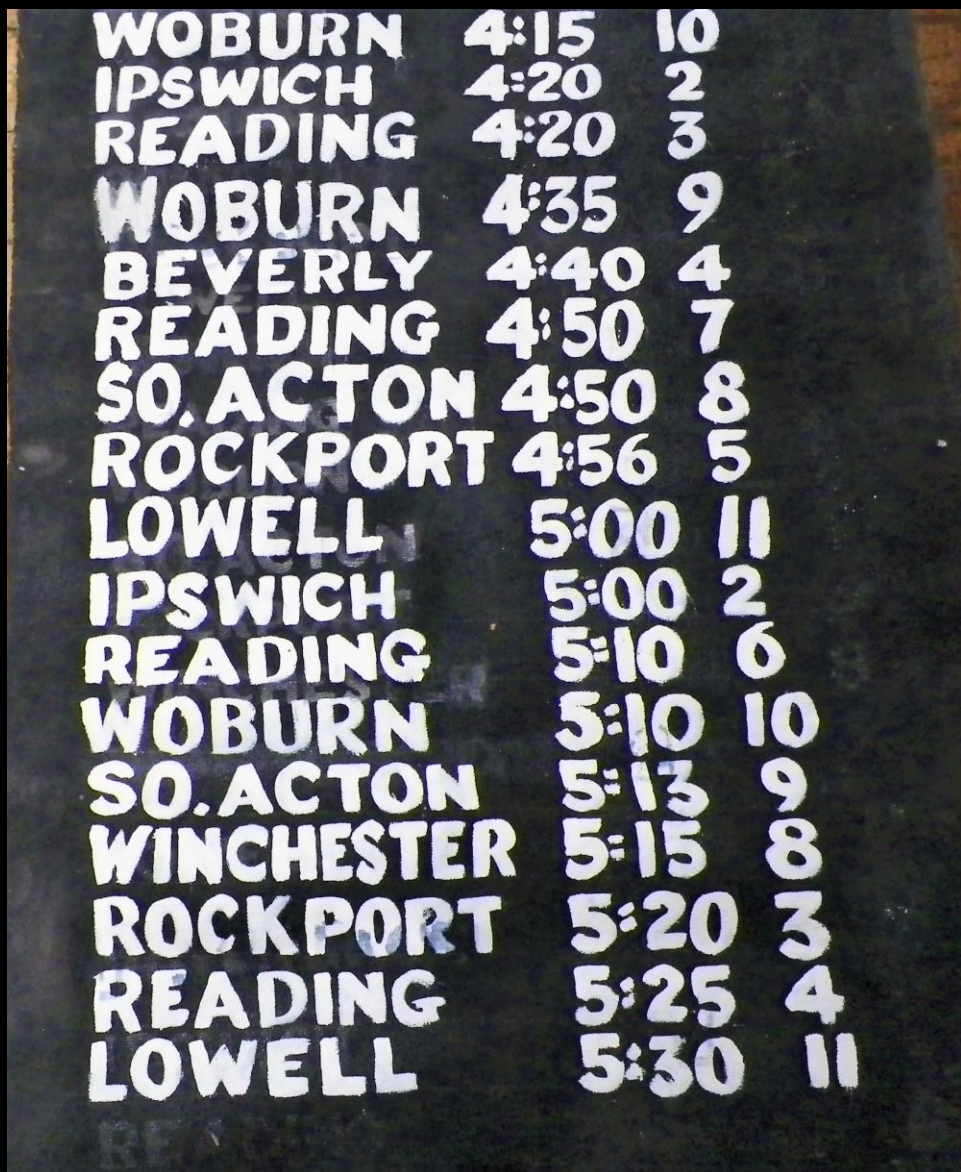 WOBURN 4:15 10
IPSWICH 4:20 2
READING 4:20 3
WOBURN 4:35 9
BEVERLY 4:40 4
READING 4:50 7
SO. ACTON 4:50 8
ROCKPORT 4:56 5
LOWELL 5:00 11
IPSWICH 5:00 2
READING 5:10 6
WOBURN 5:10 10
SO. ACTON 5:13 9
WINCHESTER 5:15 8
ROCKPORT 5:20 3
READING 5:25 4
LOWELL 5:30 11